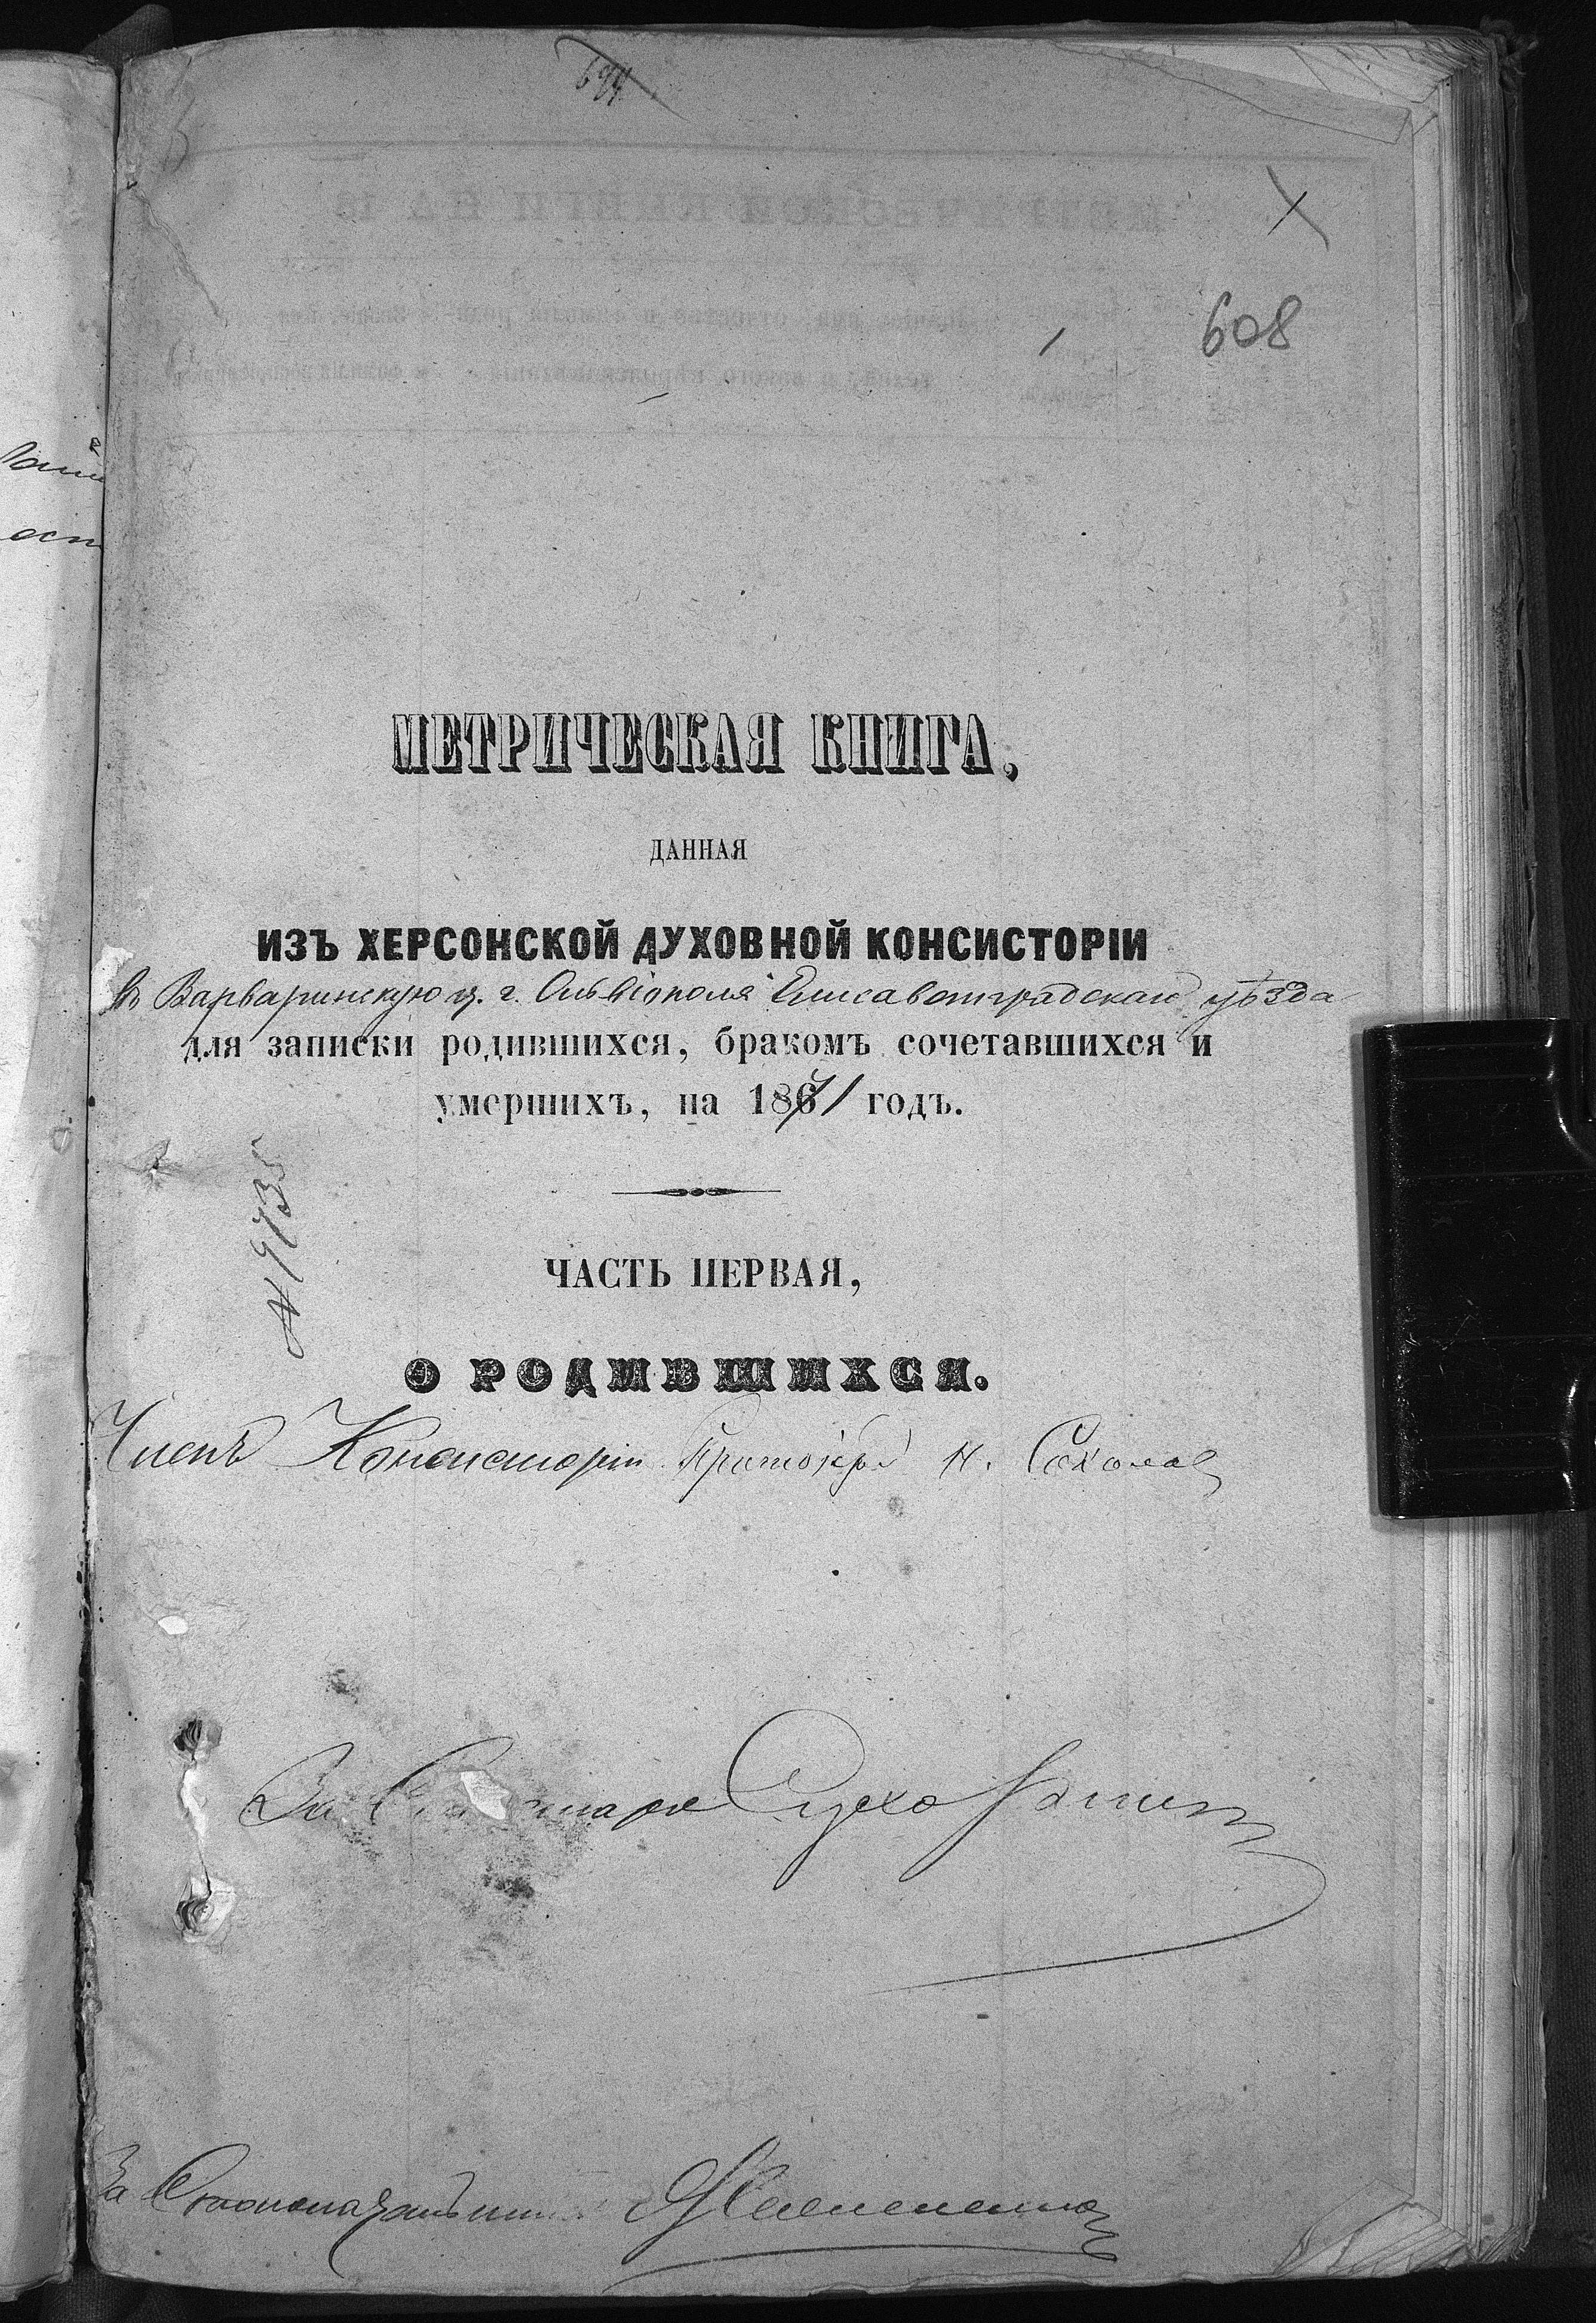 694
608
МЕТРИЧЕСКАЯ КНИГА,
ДАННАЯ
ИЗЪ ХЕРСОНСКОЙ ДУХОВНОЙ КОНСИСТОРІИ
въ Варваринскую ц. г. Ольвіополя Елисаветградскаго уѣзда
для записки родившихся, бракомъ сочетавшихся и
умершихъ, на 1871 годъ.
ЧАСТЬ ПЕРВАЯ,
О РОДИВШИХСЯ.
Членъ Консисторіи Н. Соколов
За
За Столоначальника